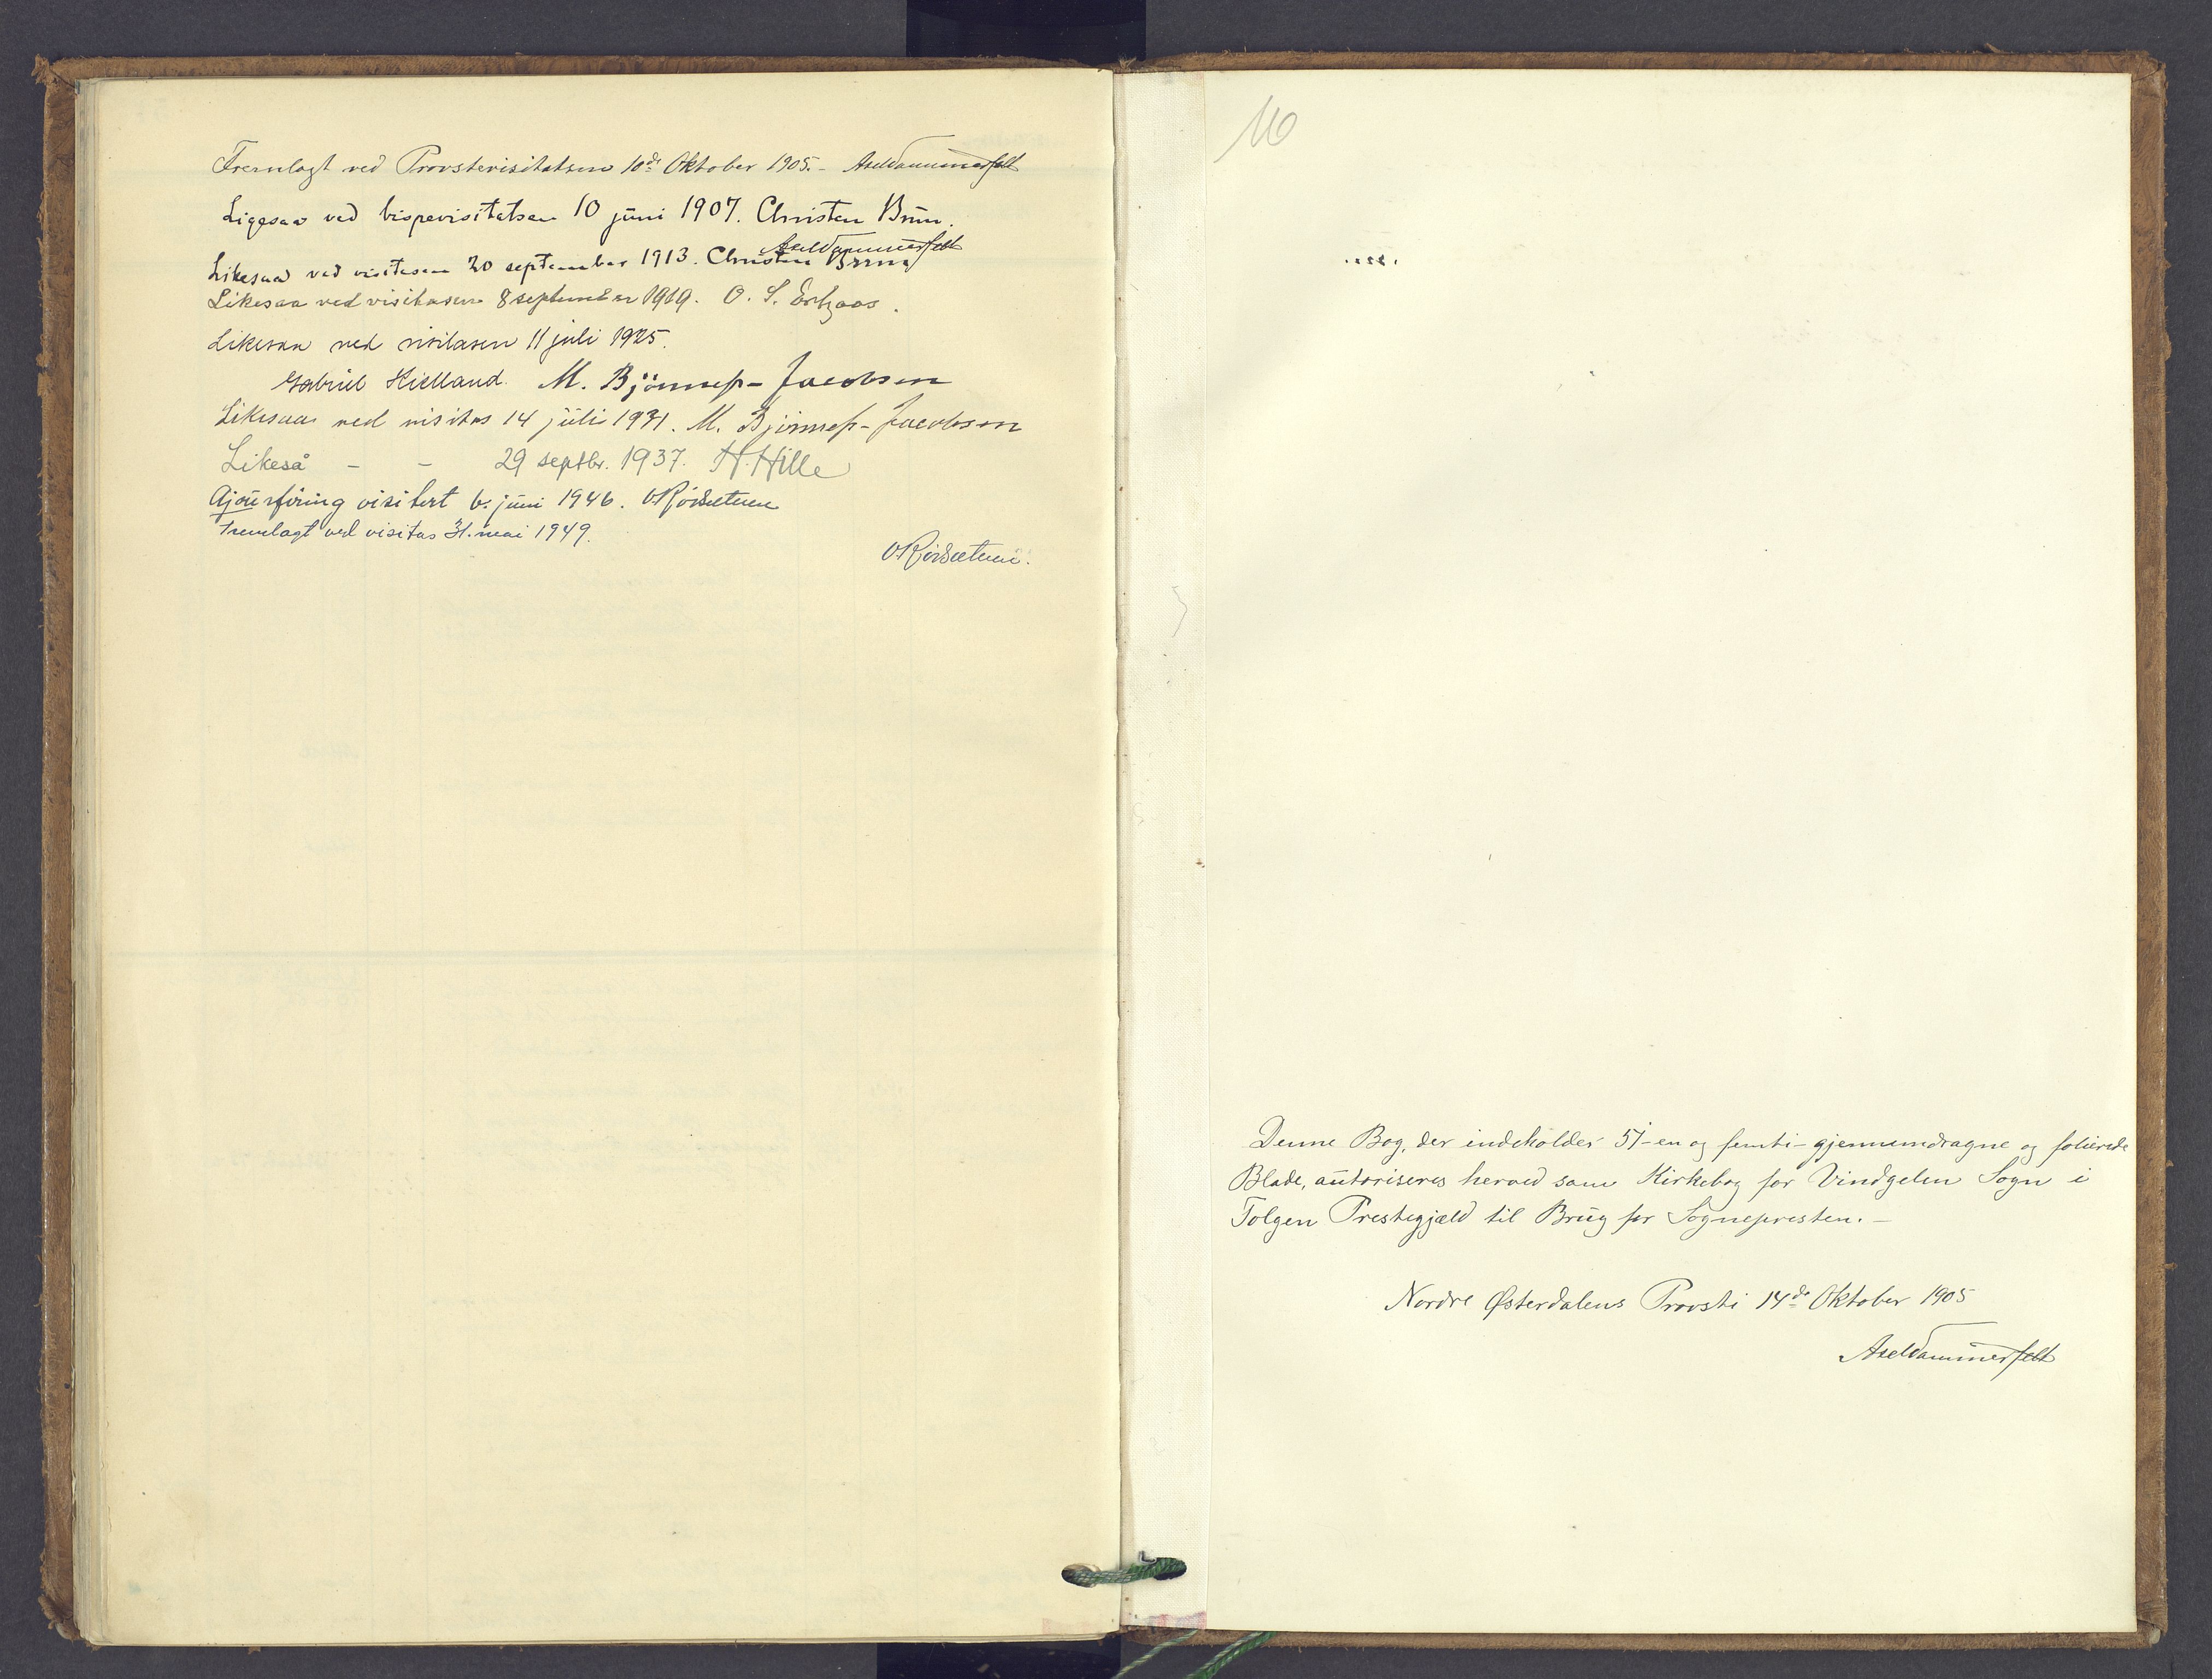 Fremlagt ved Provstevisitatsen 10de Oktober 1905. - Axel Dammerfelt
Ligesaa ved bispevisitatsen 10 juni 1907. Christen Brun.
Axel Dammerfelt
Likesaa ved visitasen 20 september 1913. Christen Brun
Likesaa ved visitasen 8 september 1919. O. S.
Likesaa ved visitasen 11 juli 1925.
Gabriel Kielland. M. Bjönnes-Jacobsen
Likesaa ved visitas 14 juli 1931. M. Bjönnes-Jacobsen
Likeså - - 29 septbr. 1937. H. Hille
Ajourföring visitert 6. juni 1946.
Fremlagt ved visitas 31. mai 1949.
110
Denne Bog, der indeholder 51 - en og femti - gjennemdragne og folierede
Blade, autoriseres herved som Kirkebog for Vindgelen Sogn i
Tolgen Prestegjæld til Brug for Sognepresten. -
Nordre Østerdalens Provsti 14de Oktober 1905
Axel Dammerfelt